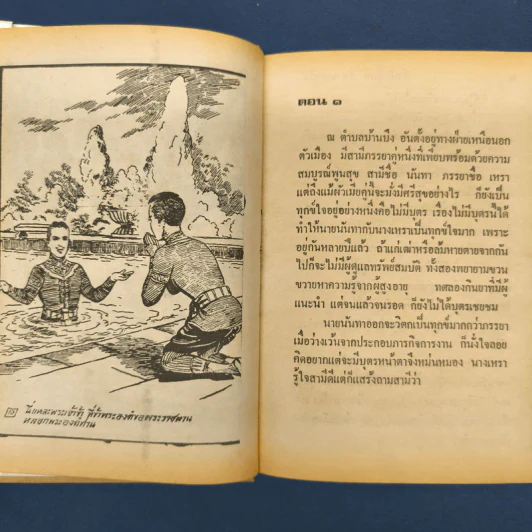 นี่แหละพระเจ้าข้า ที่ข้าพระองค์ขอพระราชทาน
ตอน ๑
ณ ตำบลบ้านบึง อันตั้งอยู่ทางฝ่ายเหนือนอก
ตัวเมือง มีสามีภรรยาคู่หนึ่งที่เพียบพร้อมด้วยความ
สมบูรณ์พูนสุข สามีชื่อ นันทา ภรรยาชื่อ เหรา
แต่ถึงแม้ผัวเมียคู่นี้จะมั่งมีศรีสุขอย่างไร ก็ยังเป็น
ทุกข์ใจอยู่อย่างหนึ่งคือไม่มีบุตร เรื่องไม่มีบุตรนี้ได้
ทำให้นายนันทากับนางเหราเป็นทุกข์ใจมาก เพราะ
อยู่กันหลายปีแล้ว ถ้าแก่เฒ่าหรือล้มหายตายจากกัน
ไปก็จะไม่มีผู้ดูแลทรัพย์สมบัติ ทั้งสองพยายามขวน
ขวายหาความรู้จากผู้สูงอายุ ทดลองกินยาที่มีผู้
แนะนำ แต่จนแล้วจนรอด ก็ยังไม่ได้บุตรเชยชม
นายนันทาออกจะวิตกเป็นทุกข์มากกว่าภรรยา
เมื่อว่างเว้นจากประกอบภารกิจการงาน ก็นั่งใจลอย
คิดอยากแต่จะมีบุตรหน้าตาจึงหม่นหมอง นางเหรา
รู้ใจสามีดีแต่ก็แสร้งถามสามีว่า